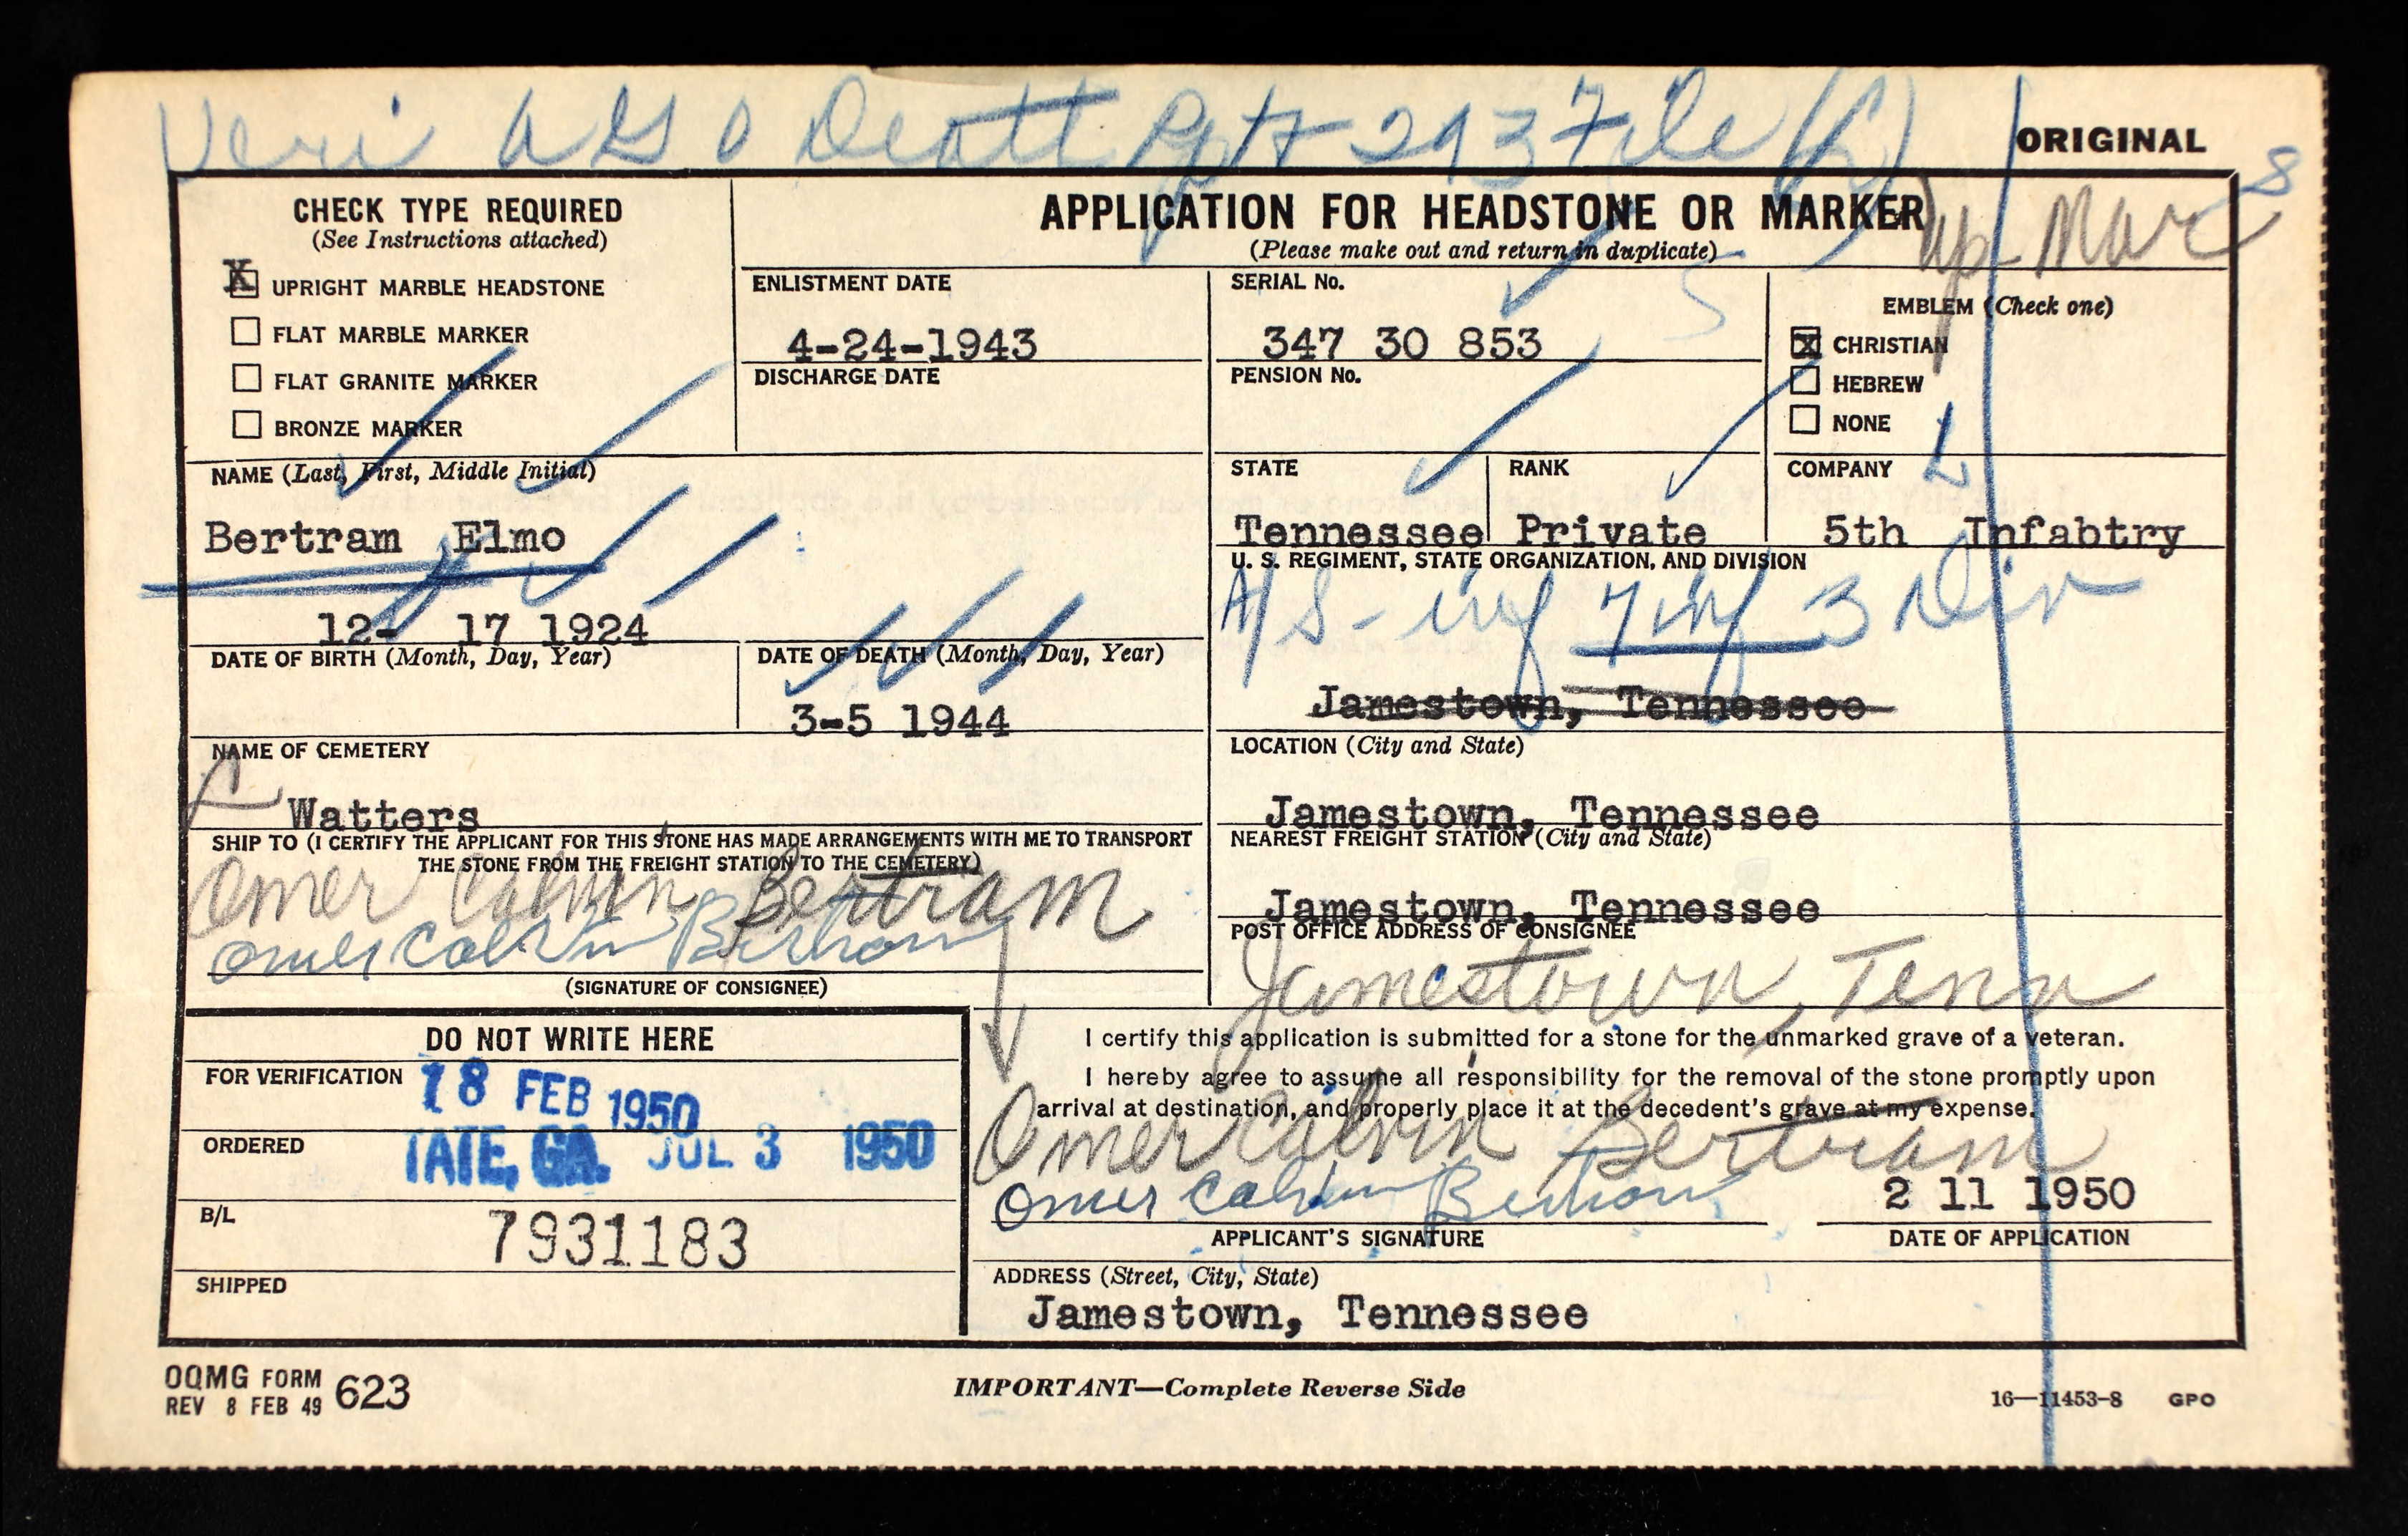 Veri AGO Death Rpt 293 File
ORIGINAL
8
CHECK TYPE REQUIRED
(See Instructions attached)
X UPRIGHT MARBLE HEADSTONE
FLAT MARBLE MARKER
FLAT GRANITE MARKER
BRONZE MARKER
APPLICATION FOR HEADSTONE OR MARKER
(Please make out and return in duplicate)
Up Mar
ENLISTMENT DATE
4-24-1943
DISCHARGE DATE
SERIAL No.
347 30 853
PENSION No.
EMBLEM (Check one)
X CHRISTIAN
HEBREW
NONE
NAME (Last, First, Middle Initial)
Bertram Elmo
STATE
Tennessee
RANK
Private
COMPANY L
5th Infabtry
12- 17 1924
DATE OF BIRTH (Month, Day, Year)
DATE OF DEATH (Month, Day, Year)
3-5 1944
U. S. REGIMENT, STATE ORGANIZATION, AND DIVISION
inf 7 inf 3 Div
Jamestown, Tennessee
NAME OF CEMETERY
Watters
LOCATION (City and State)
Jamestown, Tennessee
SHIP TO (I CERTIFY THE APPLICANT FOR THIS STONE HAS MADE ARRANGEMENTS WITH ME TO TRANSPORT
THE STONE FROM THE FREIGHT STATION TO THE CEMETERY)
Omer Calvin Bertram
Omer Calvin Bertram
(SIGNATURE OF CONSIGNEE)
NEAREST FREIGHT STATION (City and State)
Jamestown, Tennessee
POST OFFICE ADDRESS OF CONSIGNEE
Jamestown, Tenn
DO NOT WRITE HERE
FOR VERIFICATION 18 FEB 1950
ORDERED TATE, GA. JUL 3 1950
B/L 7931183
SHIPPED
I certify this application is submitted for a stone for the unmarked grave of a veteran.
I hereby agree to assume all responsibility for the removal of the stone promptly upon
arrival at destination, and properly place it at the decedent's grave at my expense.
Omer Calvin Bertram
Omer Calvin Bertram
APPLICANT'S SIGNATURE
2 11 1950
DATE OF APPLICATION
ADDRESS (Street, City, State)
Jamestown, Tennessee
OQMG FORM 623
REV 8 FEB 49
IMPORTANT—Complete Reverse Side
16—11453-8 GPO